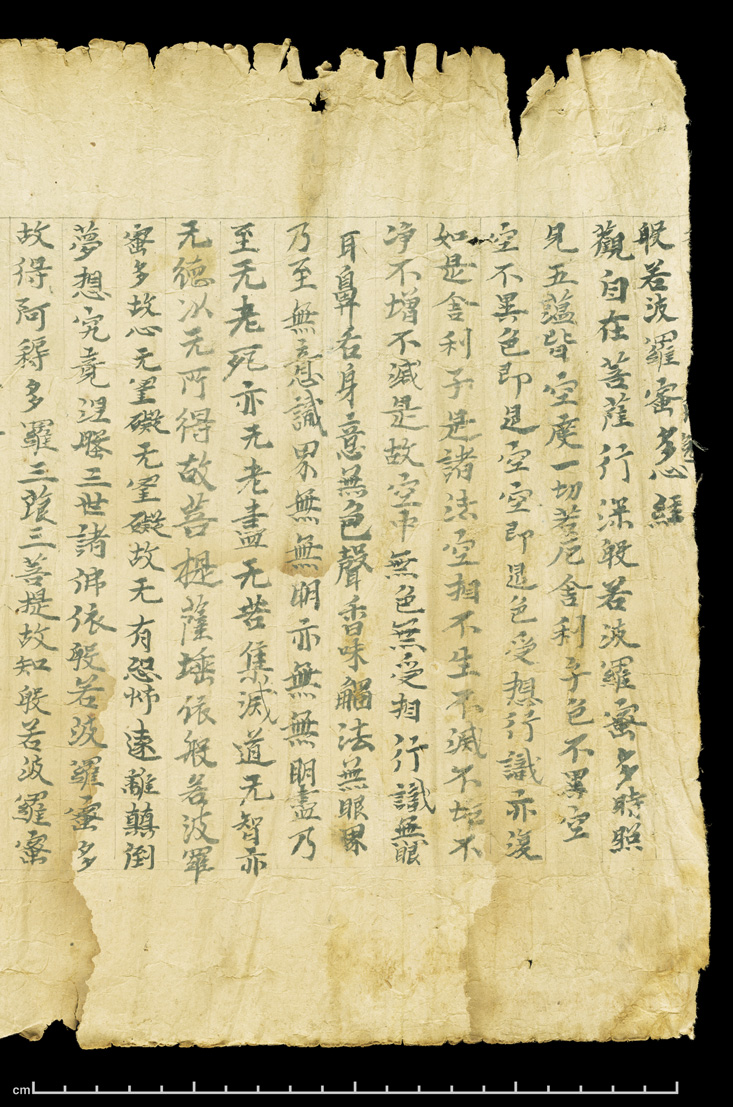 般若波羅蜜多心經
觀自在菩薩行深般若波羅蜜多時照
見五蘊皆空度一切苦厄舍利子色不異空
空不異色即是空空即是色受想行識亦復
如是舍利子是諸法空相不生不滅不垢不
净不增不滅是故空中無色無受相行識無眼
耳鼻舌身意無色聲香味觸法無眼界
乃至無意識界無無明亦無無明盡乃
至无老死亦无老盡无苦集滅道无智亦
无德以无所得故菩提薩埵依般若波羅
蜜多故心无罣礙无罣礙故无有恐怖遠離顛倒
夢想究竟涅槃三世諸佛依般若波羅蜜多
故得阿耨多羅三藐三菩提故知般若波羅蜜
cm